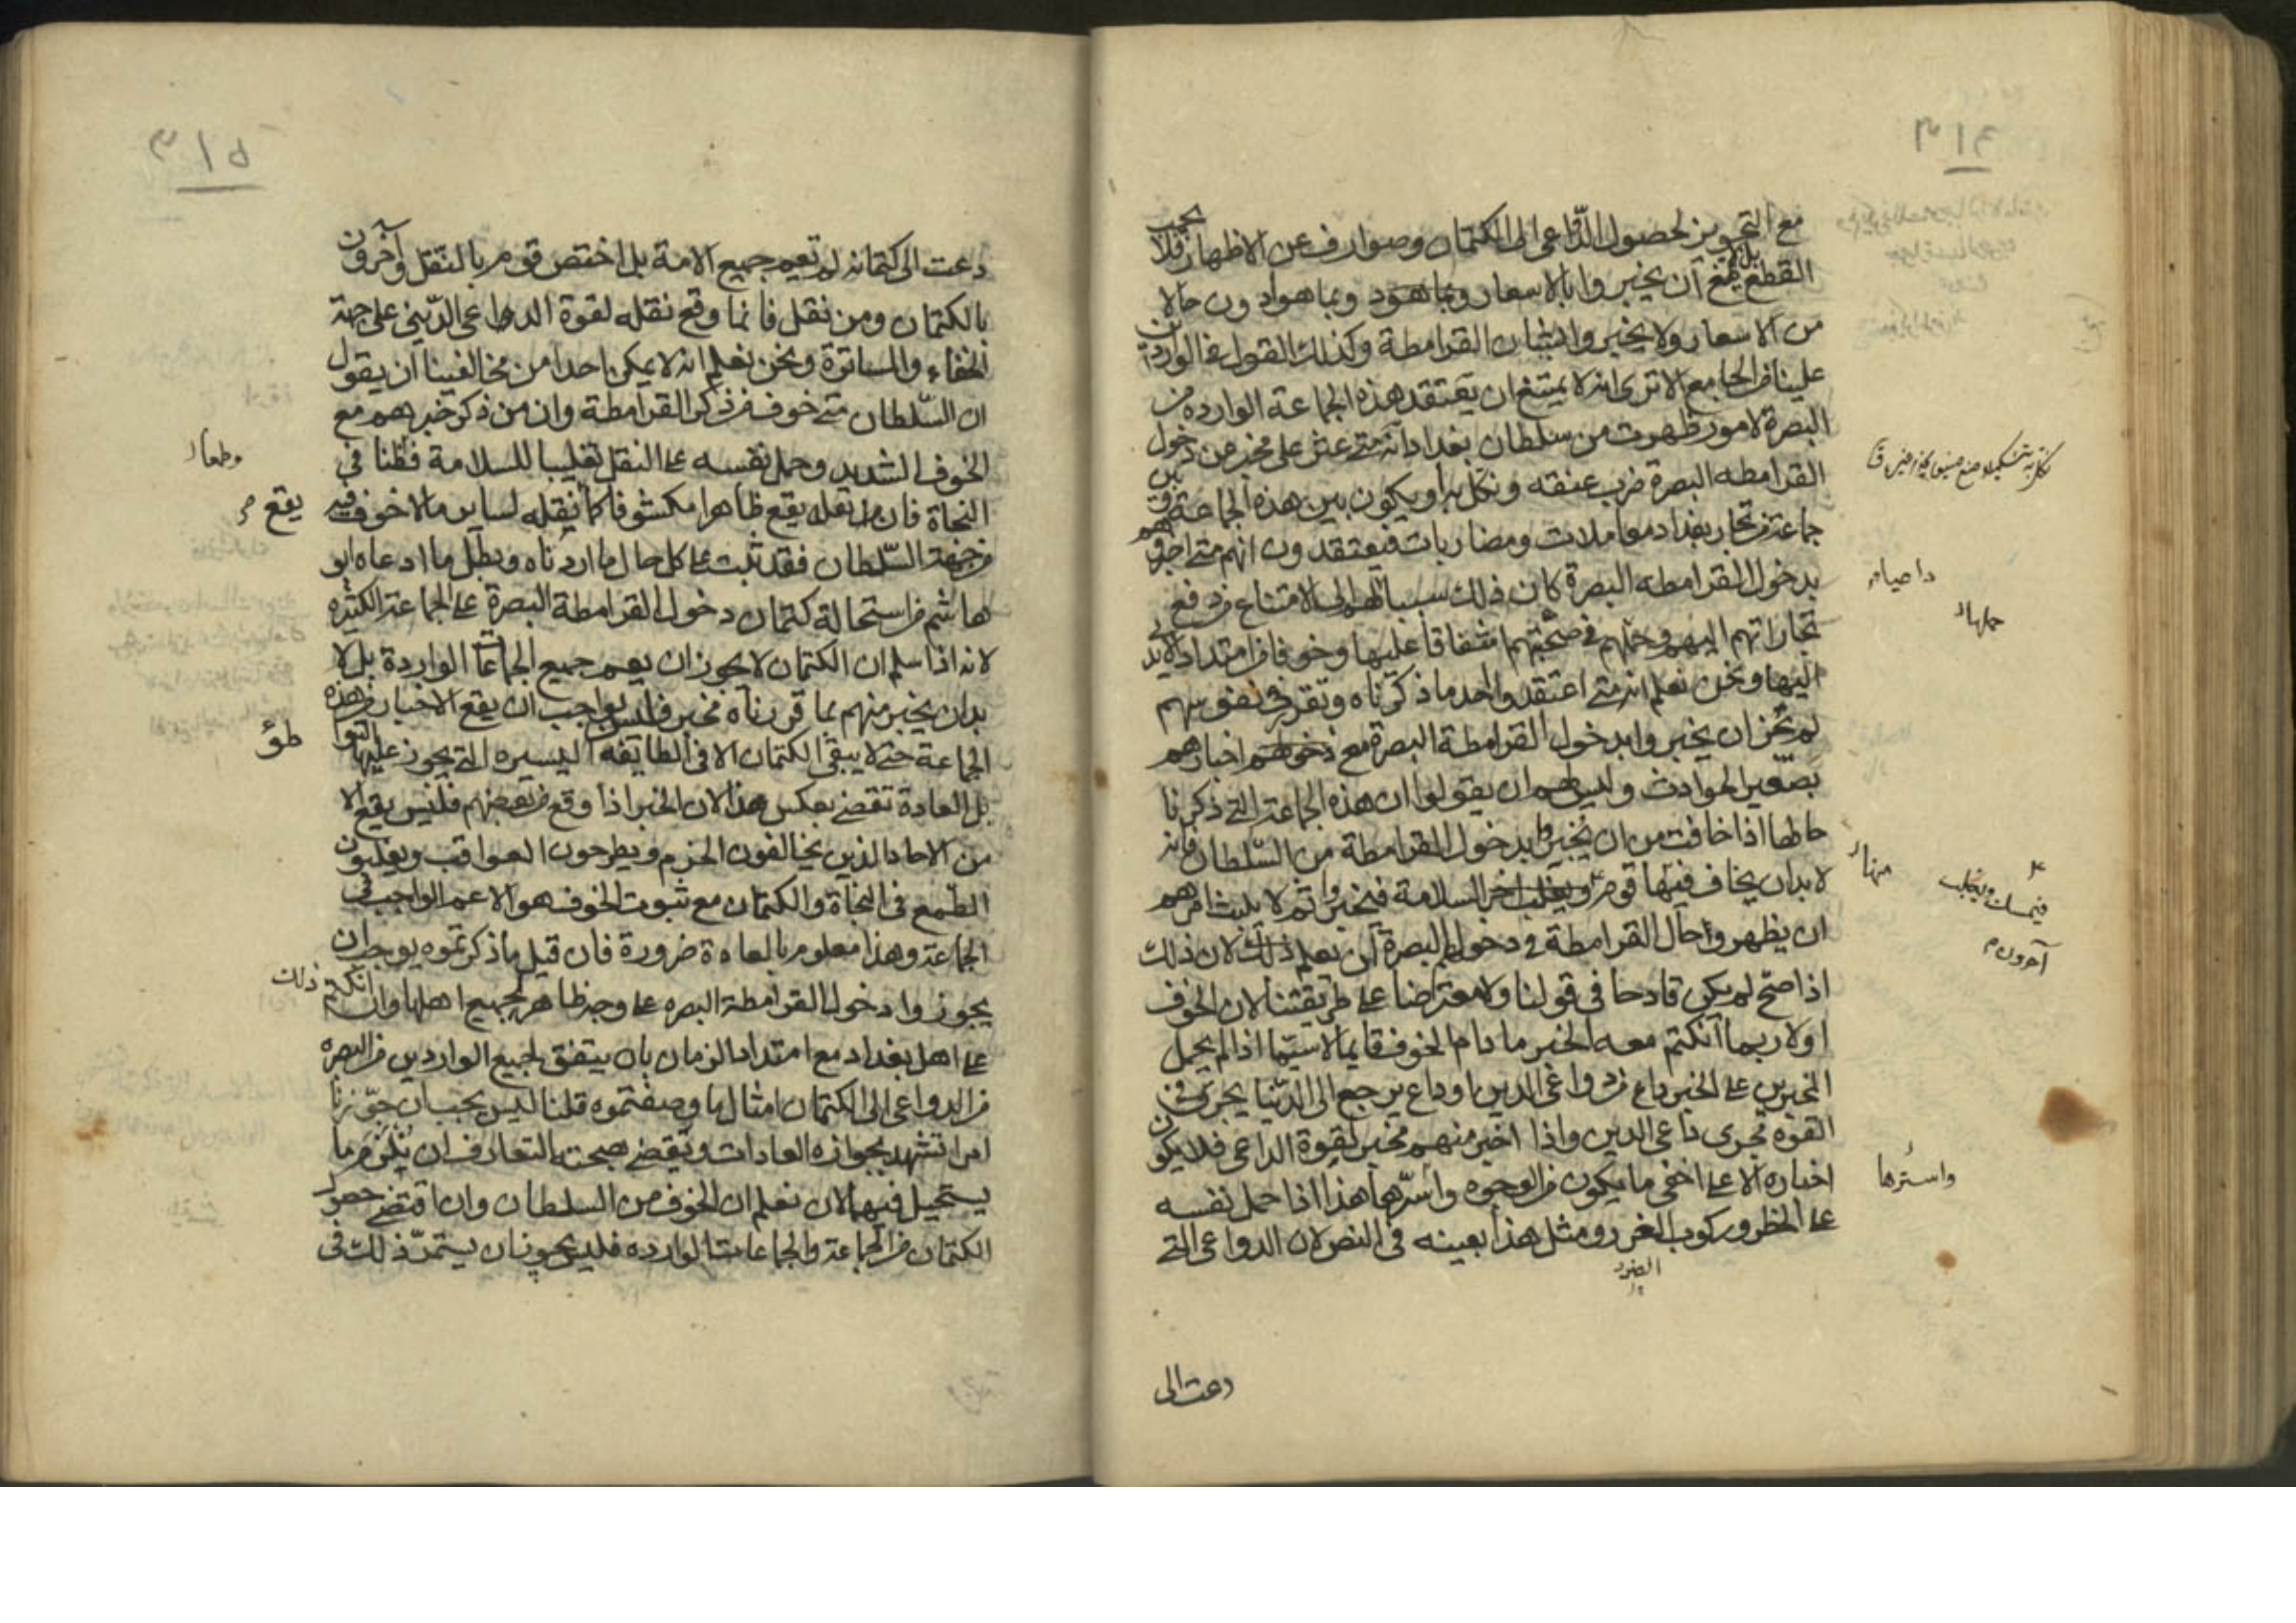 مع التجويز لحصول الدّواعى الى الكتمان وصوارف عن الاظهار فلا يجب
القطع بل لا يمتنع ان يخبروا بالاسعار وبما هو دون حالا
من الاسعار ولا يخبروا باتيان القرامطة وكذلك القول فى الواردين
علينا من الجامع الا ترى انه لا يمتنع ان يعتقد هذه الجماعة الوارده من
البصرة لامور ظهرت من سلطان بغداد انه متى عثر على مخبر عن دخول
القرامطه البصرة ضرب عنقه ونكل به او يكون بين هذه الجماعة وبين
جماعة من تجار بغداد معاملات ومضاربات فيعتقدون انهم متى اخبروهم
بدخول القرامطه البصرة كان ذلك سببا لهم الى الامتناع من دفع
تجاراتهم اليهم وحملهم فى صحبتهم اشفاقا عليها وخوفا من امتداد الايدى
اليها ونحن نعلم انه متى اعتقد واحد ما ذكرناه وتقرر فى نفوسهم
لم يجز ان يخبروا بدخول القرامطة البصرة مع اخبارهم
بصغير الحوادث وليس لهم ان يقولوا ان هذه الجماعة التى ذكرنا
حالها اذا خافت من ان يخبروا بدخول القرامطة من السّلطان فانه
لا بد ان يخاف فيها قوم السلامة فيخبروا ثم لا يلبث امرهم
ان يظهر واحال القرامطة فى دخولهم البصرة ان يعلم ذلك لان ذلك
اذا صحّ لم يكن قادحا فى قولنا ولا معترضا على طريقتنا لان الخوف
اولا ربما انكتم معه الخبر ما دام الخوف قايما لا سيّما اذا لم يحمل
المخبرين على الخبر داع من دواعى الدين او داع يرجع الى الدّنيا يجرى فى
القوة مجرى داعى الدين واذا اخبر منهم مخبر لقوة الداعى فلا يكون
اخباره الا على اخفى ما يكون من الوجوه واسرّها هذا اذا حمل نفسه
على الخطر وركوب الغرر ومثل هذا بعينه فى النص لان الدواعى التى
الضرر
منها
فيمسك ويغلب
آخرون
واسترها
دعت الى
٣١٥
دعت الى كتمانه لم تعم جميع الامة بل اختص قوم بالنقل وآخرون
بالكتمان ومن نقل فانما وقع نقله لقوة الدواعى الدّينى على جهة
الخفاء والمساترة ونحن نعلم انه لا يمكن احدا من مخالفينا ان يقول
ان السّلطان متى خوف من ذكر القرامطة وان من ذكر خبرهم مع
الخوف الشديد وحمل نفسه على النقل تغليبا للسلامة فظنا فى
النجاة فان نقله يقع ظاهرا مكشوفا كما نقله لساير ما لا خوف فيه
من جهة السّلطان فقد ثبت على كل حال ما اردناه وبطل ما ادعاه ابو
هاشم من استحالة كتمان دخول القرامطة البصرة على الجماعة الكثيره
لانه اذا سلم ان الكتمان لا يجوز ان يعم جميع الجماعات الواردة بل لا
بد ان يخبر منهم بما قررناه مخبر فليس بواجب ان يقع الاخبار من هذه
الجماعة حتى لا يبقى الكتمان الا فى الطايفه اليسيره التى يجوز عليها التواطؤ
بل العادة تقضى بعكس هذا لان الخبر اذا وقع من بعضهم فليس يقع الا
من الاحاد الذين يخالفون الحزم ويطرحون العواقب ويغلبون
الطمع فى النجاة والكتمان مع ثبوت الخوف هو الاعم الواجب فى
الجماعة وهذا معلوم بالعادة ضرورة فان قيل ما ذكرتموه يوجب ان
يجوزوا دخول القرامطة البصره على وجه ظاهر لجميع اهلها وان انكتم ذلك
على اهل بغداد مع امتداد الزمان بان يتفق لجميع الواردين من البصره
من الدواعى الى الكتمان امثال ما وصفتموه قلنا ليس يجب ان جوّزنا
امرا تشهد بجوازه العادات وتقضى بصحته التعارف ان يلزم ما
يستحيل فيهما لان نعلم ان الخوف من السلطان وان اقتضى حصول
الكتمان من الجماعة والجماعات الوارده فليس يجوز ان يستمرّ ذلك فى
وطعا
يقع